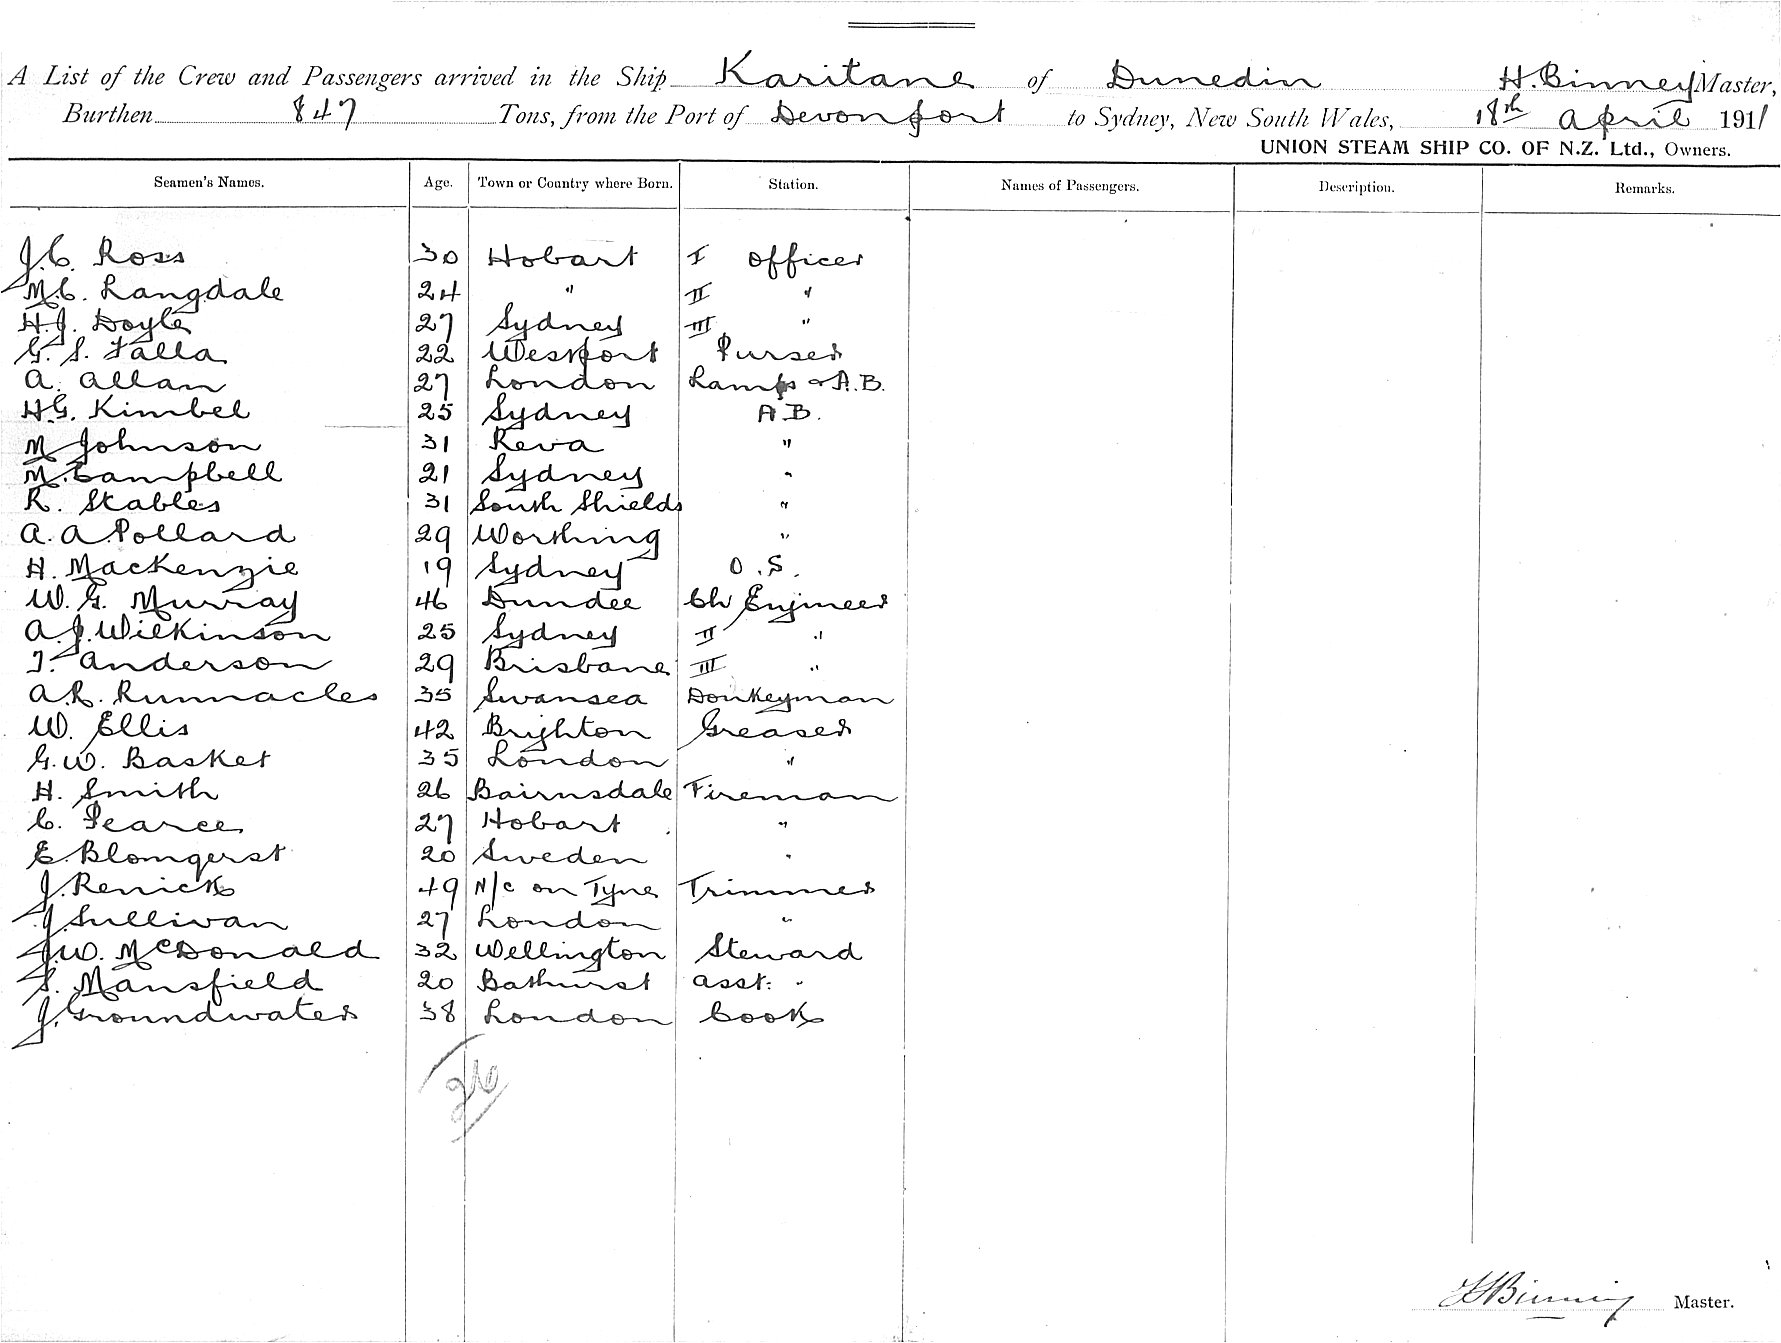 A List of the Crew and Passengers arrived in the Ship Karitane of Dunedin H. Binney Master,
Burthen 847 Tons, from the Port of Devonport to Sydney, New South Wales, 18th April 1911
UNION STEAM SHIP CO. OF N.Z. Ltd., Owners.
Seamen's Names. Age. Town or Country where Born. Station. Names of Passengers. Description. Remarks.
J.C. Ross 30 Hobart I Officer
M.C. Langdale 24 " II "
H.J. Doyle 27 Sydney III "
G. S. Falla 22 Westport Purser
A. Allan 27 London Lamps & A.B.
H.G. Kimbel 25 Sydney A.B.
M Johnson 31 Reva "
M. Campbell 21 Sydney "
R. Stables 31 South Shields "
A. A Pollard 29 Worthing "
H. Mackenzie 19 Sydney O.S.
W. G. Murray 46 Dundee Ch Engineer
A.J. Wilkinson 25 Sydney II "
T. Anderson 29 Brisbane III "
A.R. Runnacles 35 Swansea Donkeyman
W. Ellis 42 Brighton Greaser
G.W. Basket 35 London "
H. Smith 26 Bairnsdale Fireman
C. Pearce 27 Hobart "
E. Blomqerst 20 Sweden "
J. Renick 49 N/c on Tyne Trimmer
J Sullivan 27 London "
J.W. McDonald 32 Wellington Steward
S. Mansfield 20 Bathurst Asst. "
J. Groundwater 38 London Cook
26
H Binney Master.